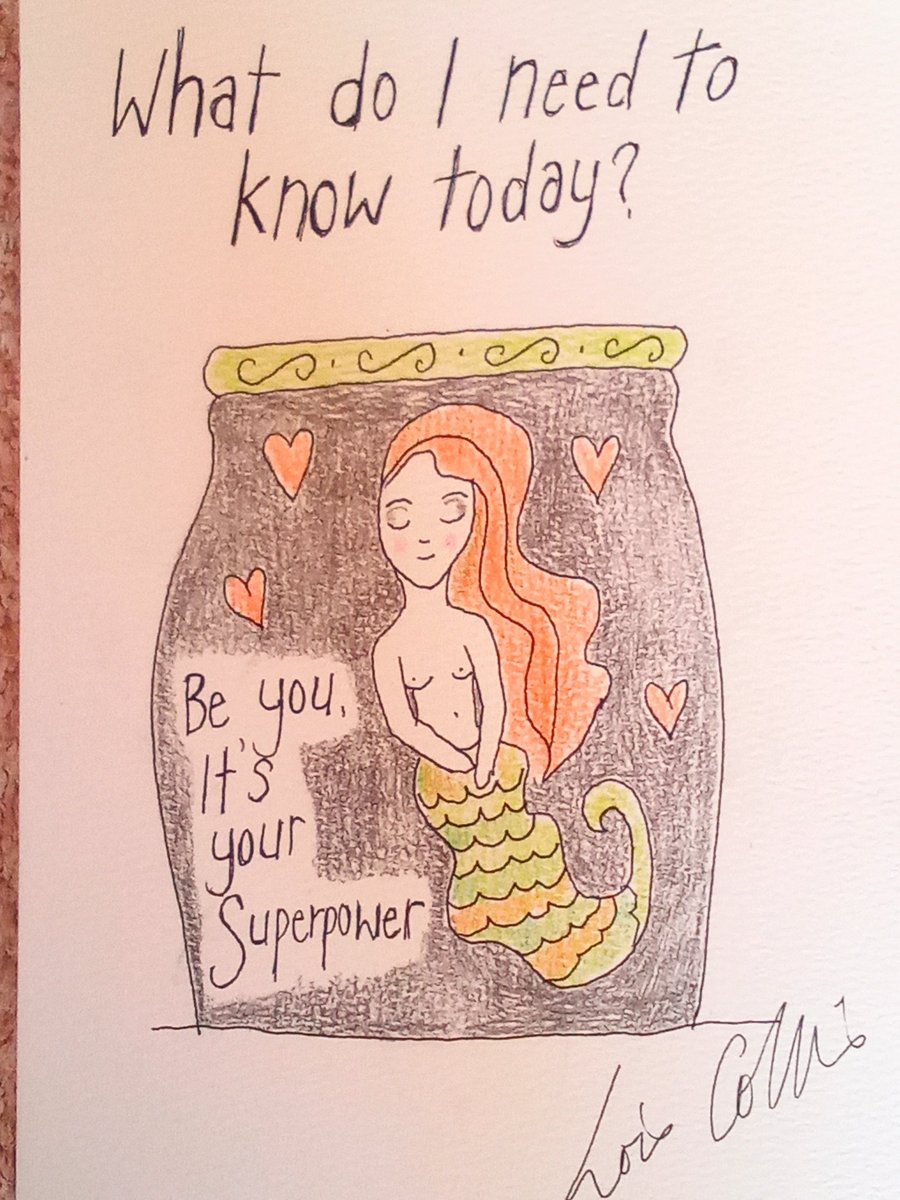 What do I need to
know today?
Be you.
It's
your
Superpower
Lois Collis